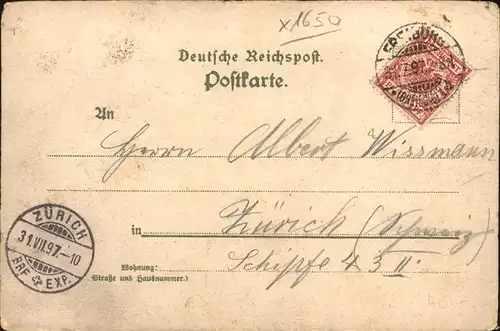 x1650
Deutsche Reichspost.
Postkarte.
An
Herrn Albert Wissmann
in Zürich (Schweiz)
Schipfe 43 II.
Wohnung:
(Straße und Hausnummer.)
ZÜRICH
31.VII.97.-10
BRF. EXP.